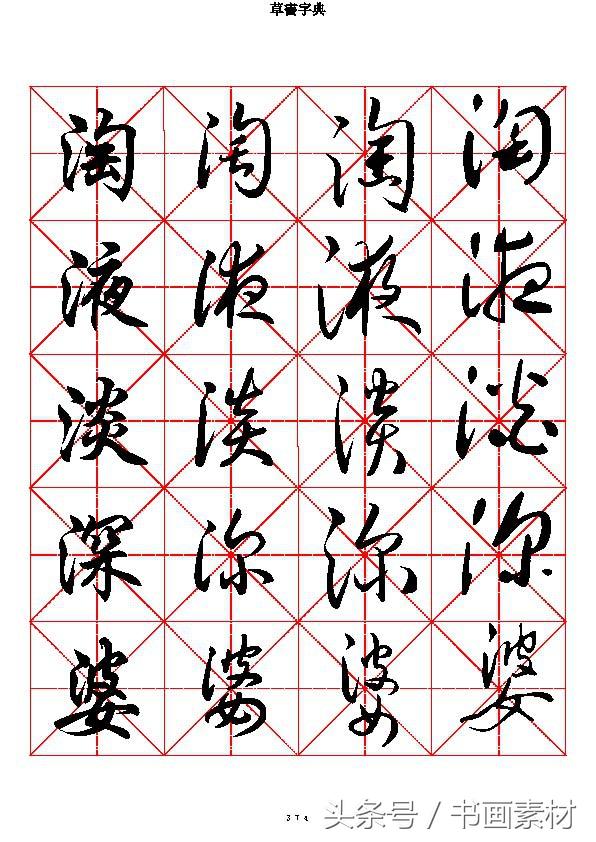 草書字典
淘 淘 淘 淘
液 液 液 液
淡 淡 淡 淡
深 深 深 深
婆 婆 婆 婆
374
头条号 / 书画素材